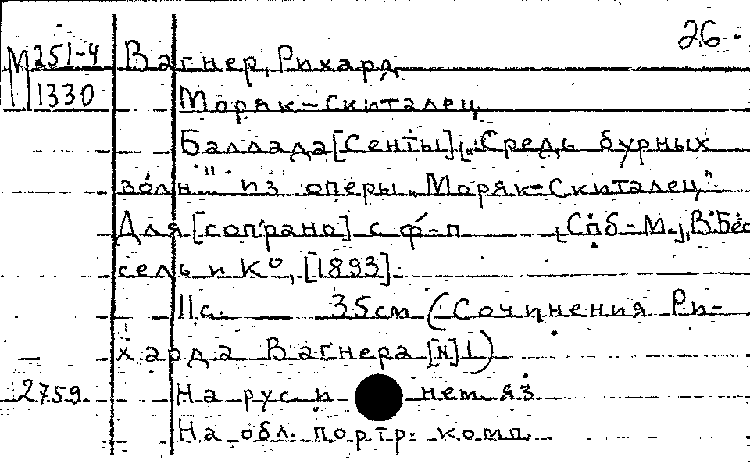 26.
М 251-4 Вагнер, Рихард
1330 Моряк-скиталец
Баллада [Сенты] „Средь бурных
волн" из оперы „Моряк-Скиталец".
Для [сопрано] с ф-п [Спб-М.], В. Бес
сель и К°, [1893].
11с. 35см (Сочинения Ри-
харда Вагнера [н] 1)
2759. На рус и нем яз
На обл. портр. комп.